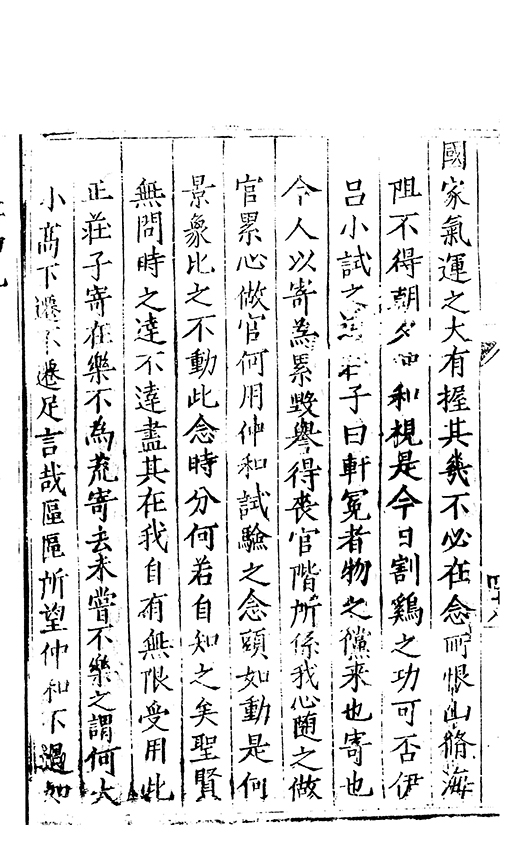 國家氣運之大有握其幾不必在念所恨山脩海
阻不得朝夕仲和視是今日割鷄之功可否伊
呂小試之 莊子曰軒冕者物之儻來也寄也
今人以寄為累毀譽得喪官階所係我心隨之做
官累心做官何用仲和試驗之念頭如動是何
景象比之不動此念時分何若自知之矣聖賢
無問時之達不達盡其在我自有無限受用此
正莊子寄在樂不為荒寄去未嘗不樂之謂何大
小高下遷不遷足言哉區區所望仲和不過如